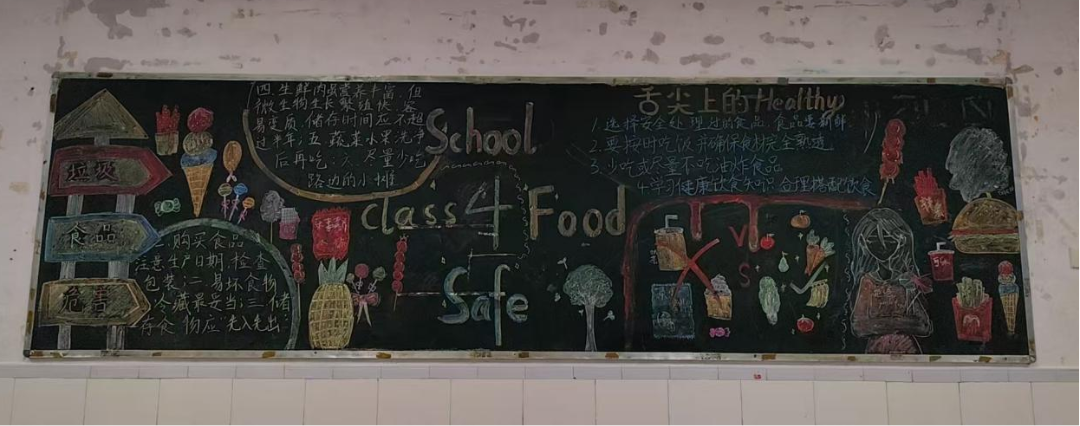 垃圾
食品
危害
四.生鲜肉蛋营养丰富,但
微生物生长繁殖快,容
易变质,储存时间应不超
过半年;五.蔬菜水果洗净
后再吃.六.尽量少吃
路边的小摊
二.购买食品
注意生产日期,检查
包装;一.易坏食物
冷藏果是当;三.储
存食物应先入先出
School
class 4 Food
Safe
舌尖上的Healthy
1.选择安全处理过的食品,食品要新鲜
2.要按时吃饭,并确保食材完全熟透
3.少吃或尽量不吃油炸食品
4.学习健康饮食知识合理搭配饮食
VS